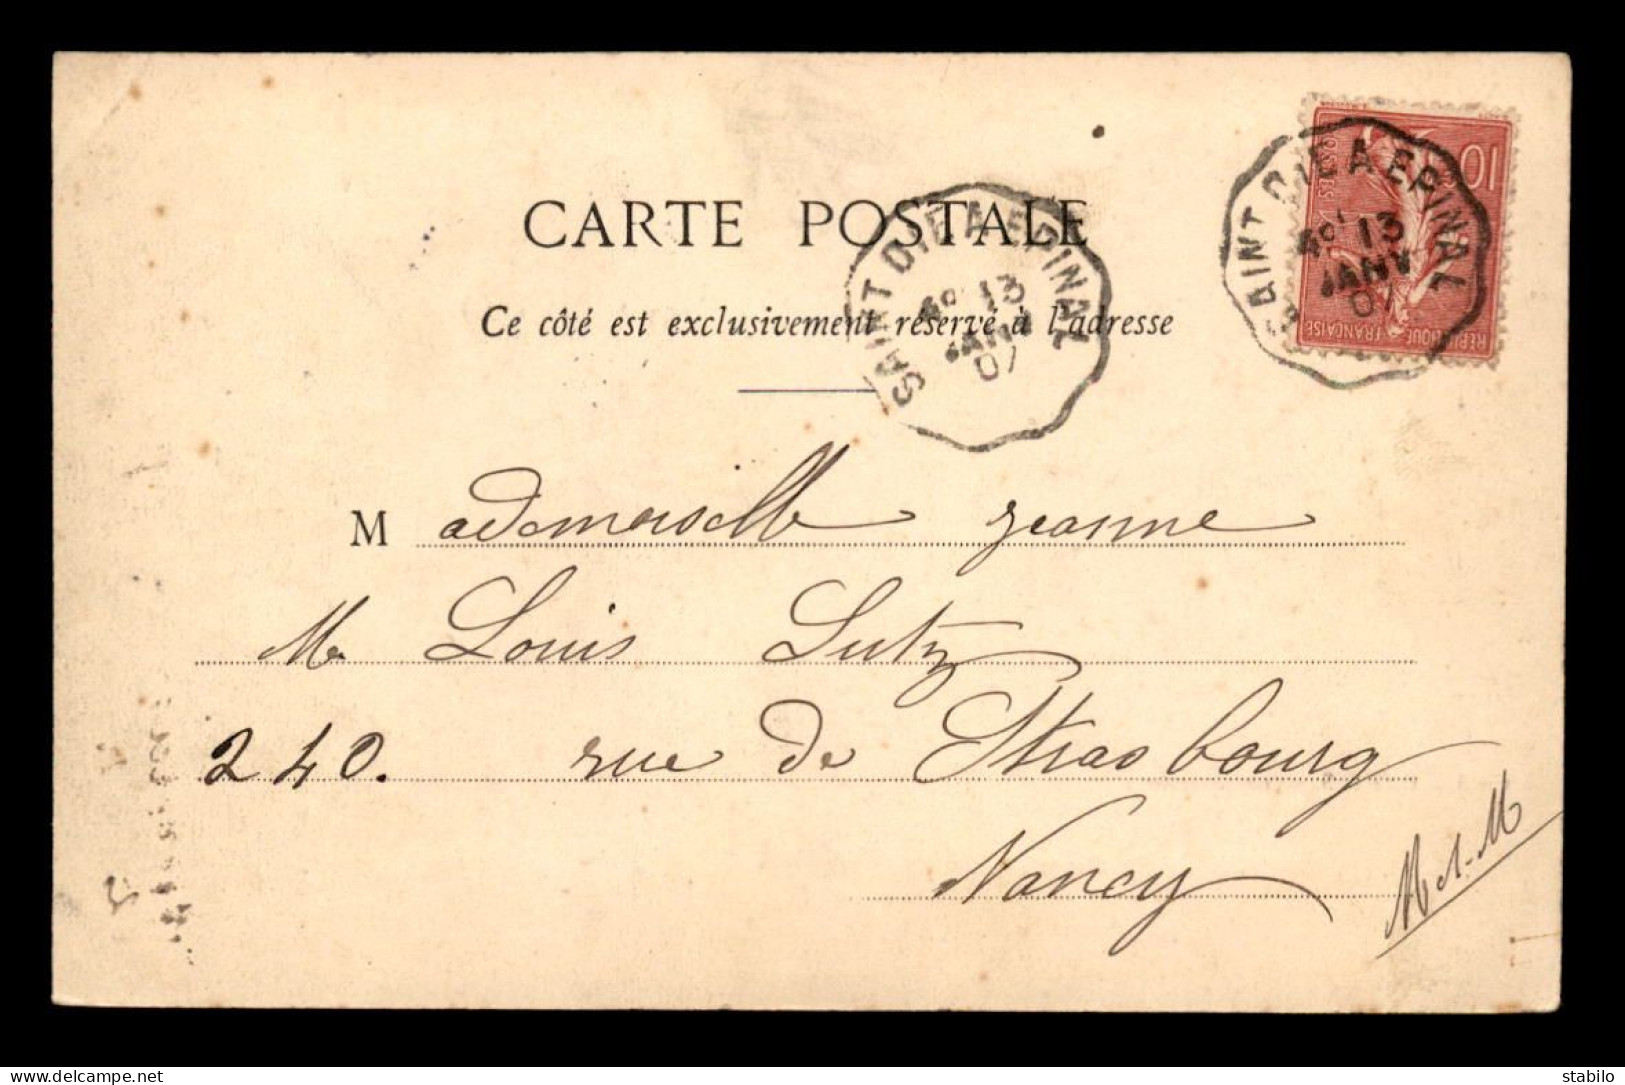 CARTE POSTALE
Ce côté est exclusivement réservé à l'adresse
SAINT DIE A EPINAL
13
JANV
07
SAINT DIE A EPINAL
13
JANV
07
10
POSTES
REPUBLIQUE FRANÇAISE
Mademoiselle Jeanne
M. Louis Lutz
240. rue de Strasbourg
Nancy
Mt-M
delcampe.net
stabilo